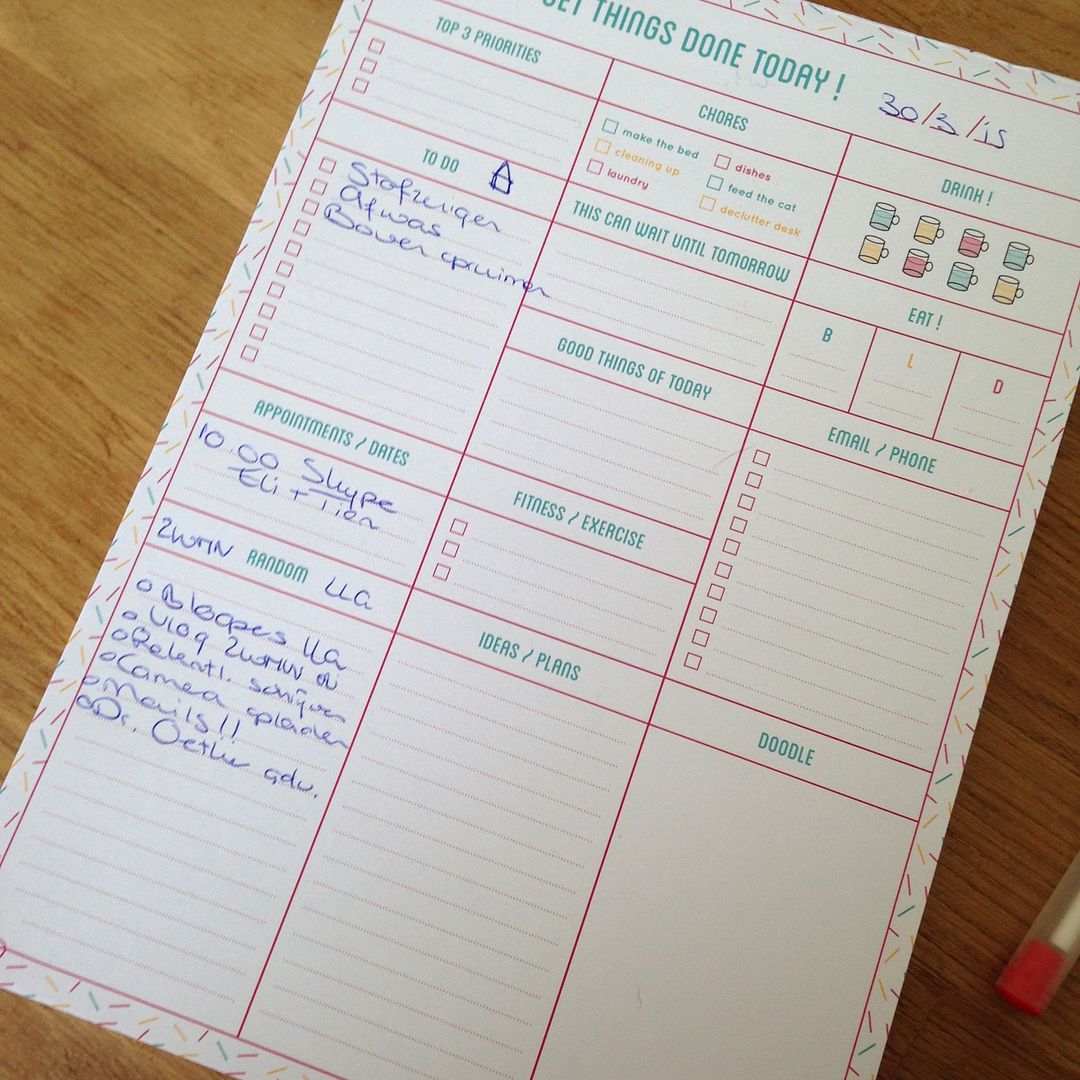 GET THINGS DONE TODAY!
30/3/15
TOP 3 PRIORITIES
TO DO
Stofzuigen
Afwas
Boven opruimen
APPOINTMENTS / DATES
10.00 Skype
Eli + Tien
ZWMN RANDOM LLA
Blogpes LLA
Vlog ZWMN
schijven
Camea opladen
Mails!!
Dr. Oetker adv.
CHORES
make the bed
cleaning up
laundry
dishes
feed the cat
declutter desk
THIS CAN WAIT UNTIL TOMORROW
GOOD THINGS OF TODAY
FITNESS / EXERCISE
IDEAS / PLANS
DRINK!
EAT!
B L D
EMAIL / PHONE
DOODLE